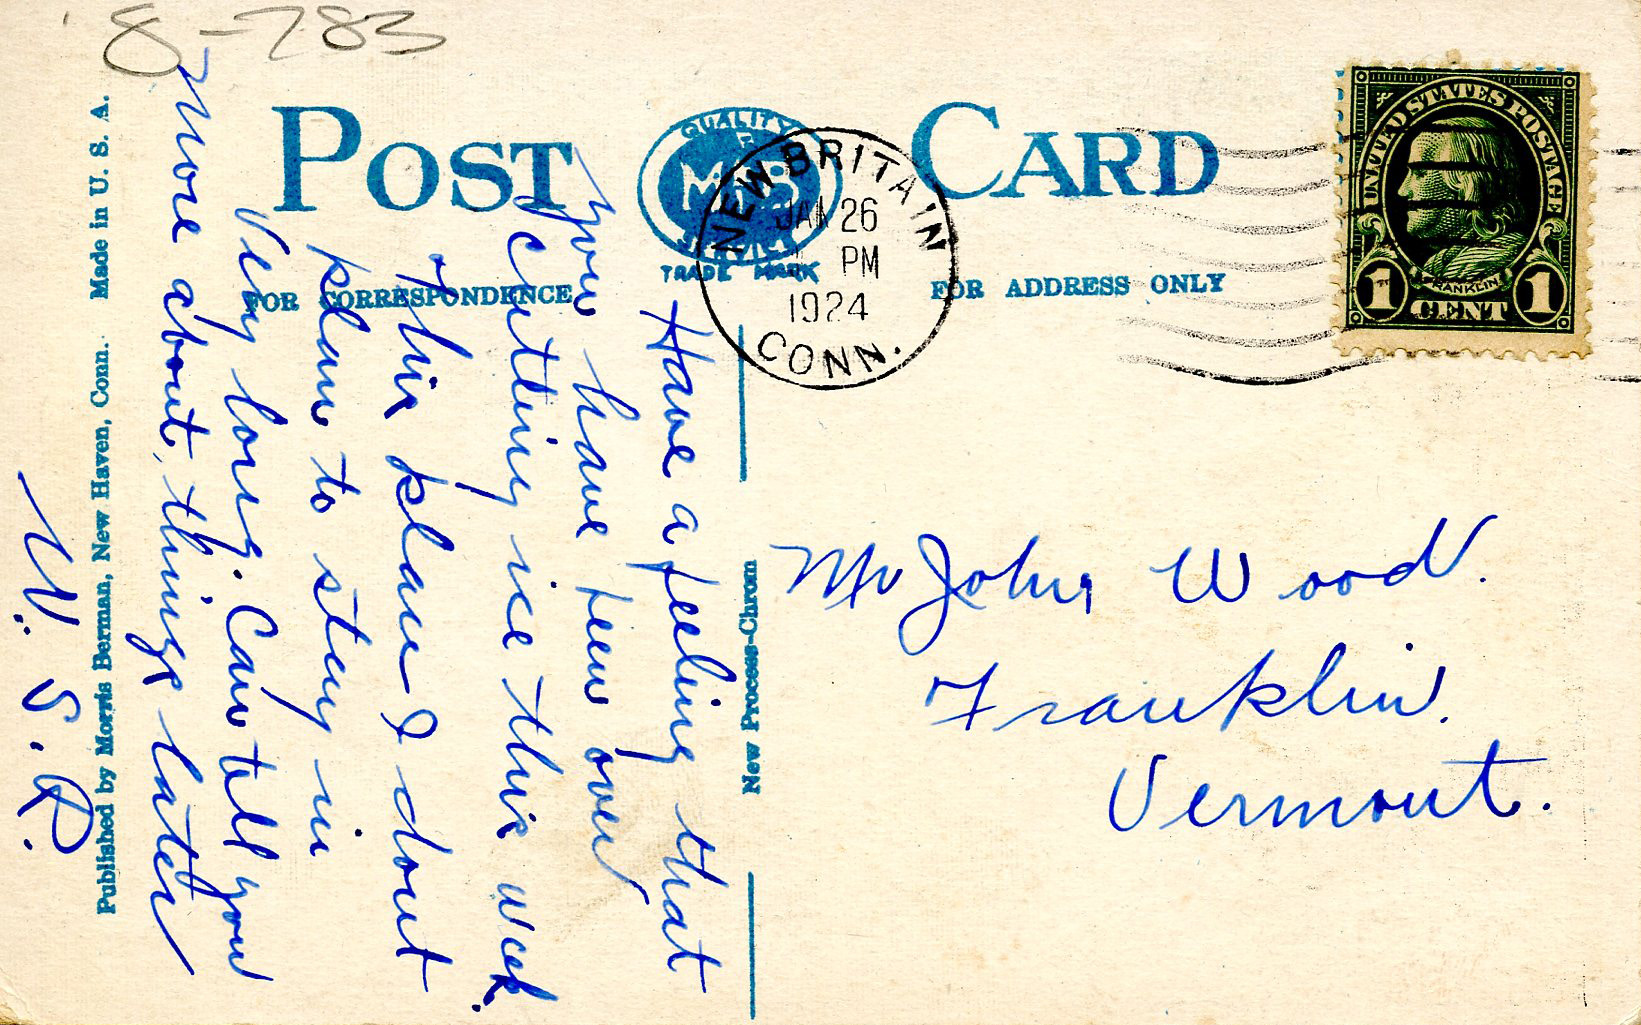 8-783
POST CARD
QUALITY
M B
SERVICE
TRADE MARK
NEW BRITAIN
JAN 26
PM
1924
CONN.
UNITED STATES POSTAGE
FRANKLIN
1 CENT 1
FOR CORRESPONDENCE
FOR ADDRESS ONLY
Have a feeling that
you have been over
cutting ice this week.
This plan I dont
plan to stay in
very long. Can tell you
more about things later
W. S. R.
Mr John Wood.
Franklin.
Vermont.
New Process-Chrom
Published by Morris Berman, New Haven, Conn. Made in U. S. A.